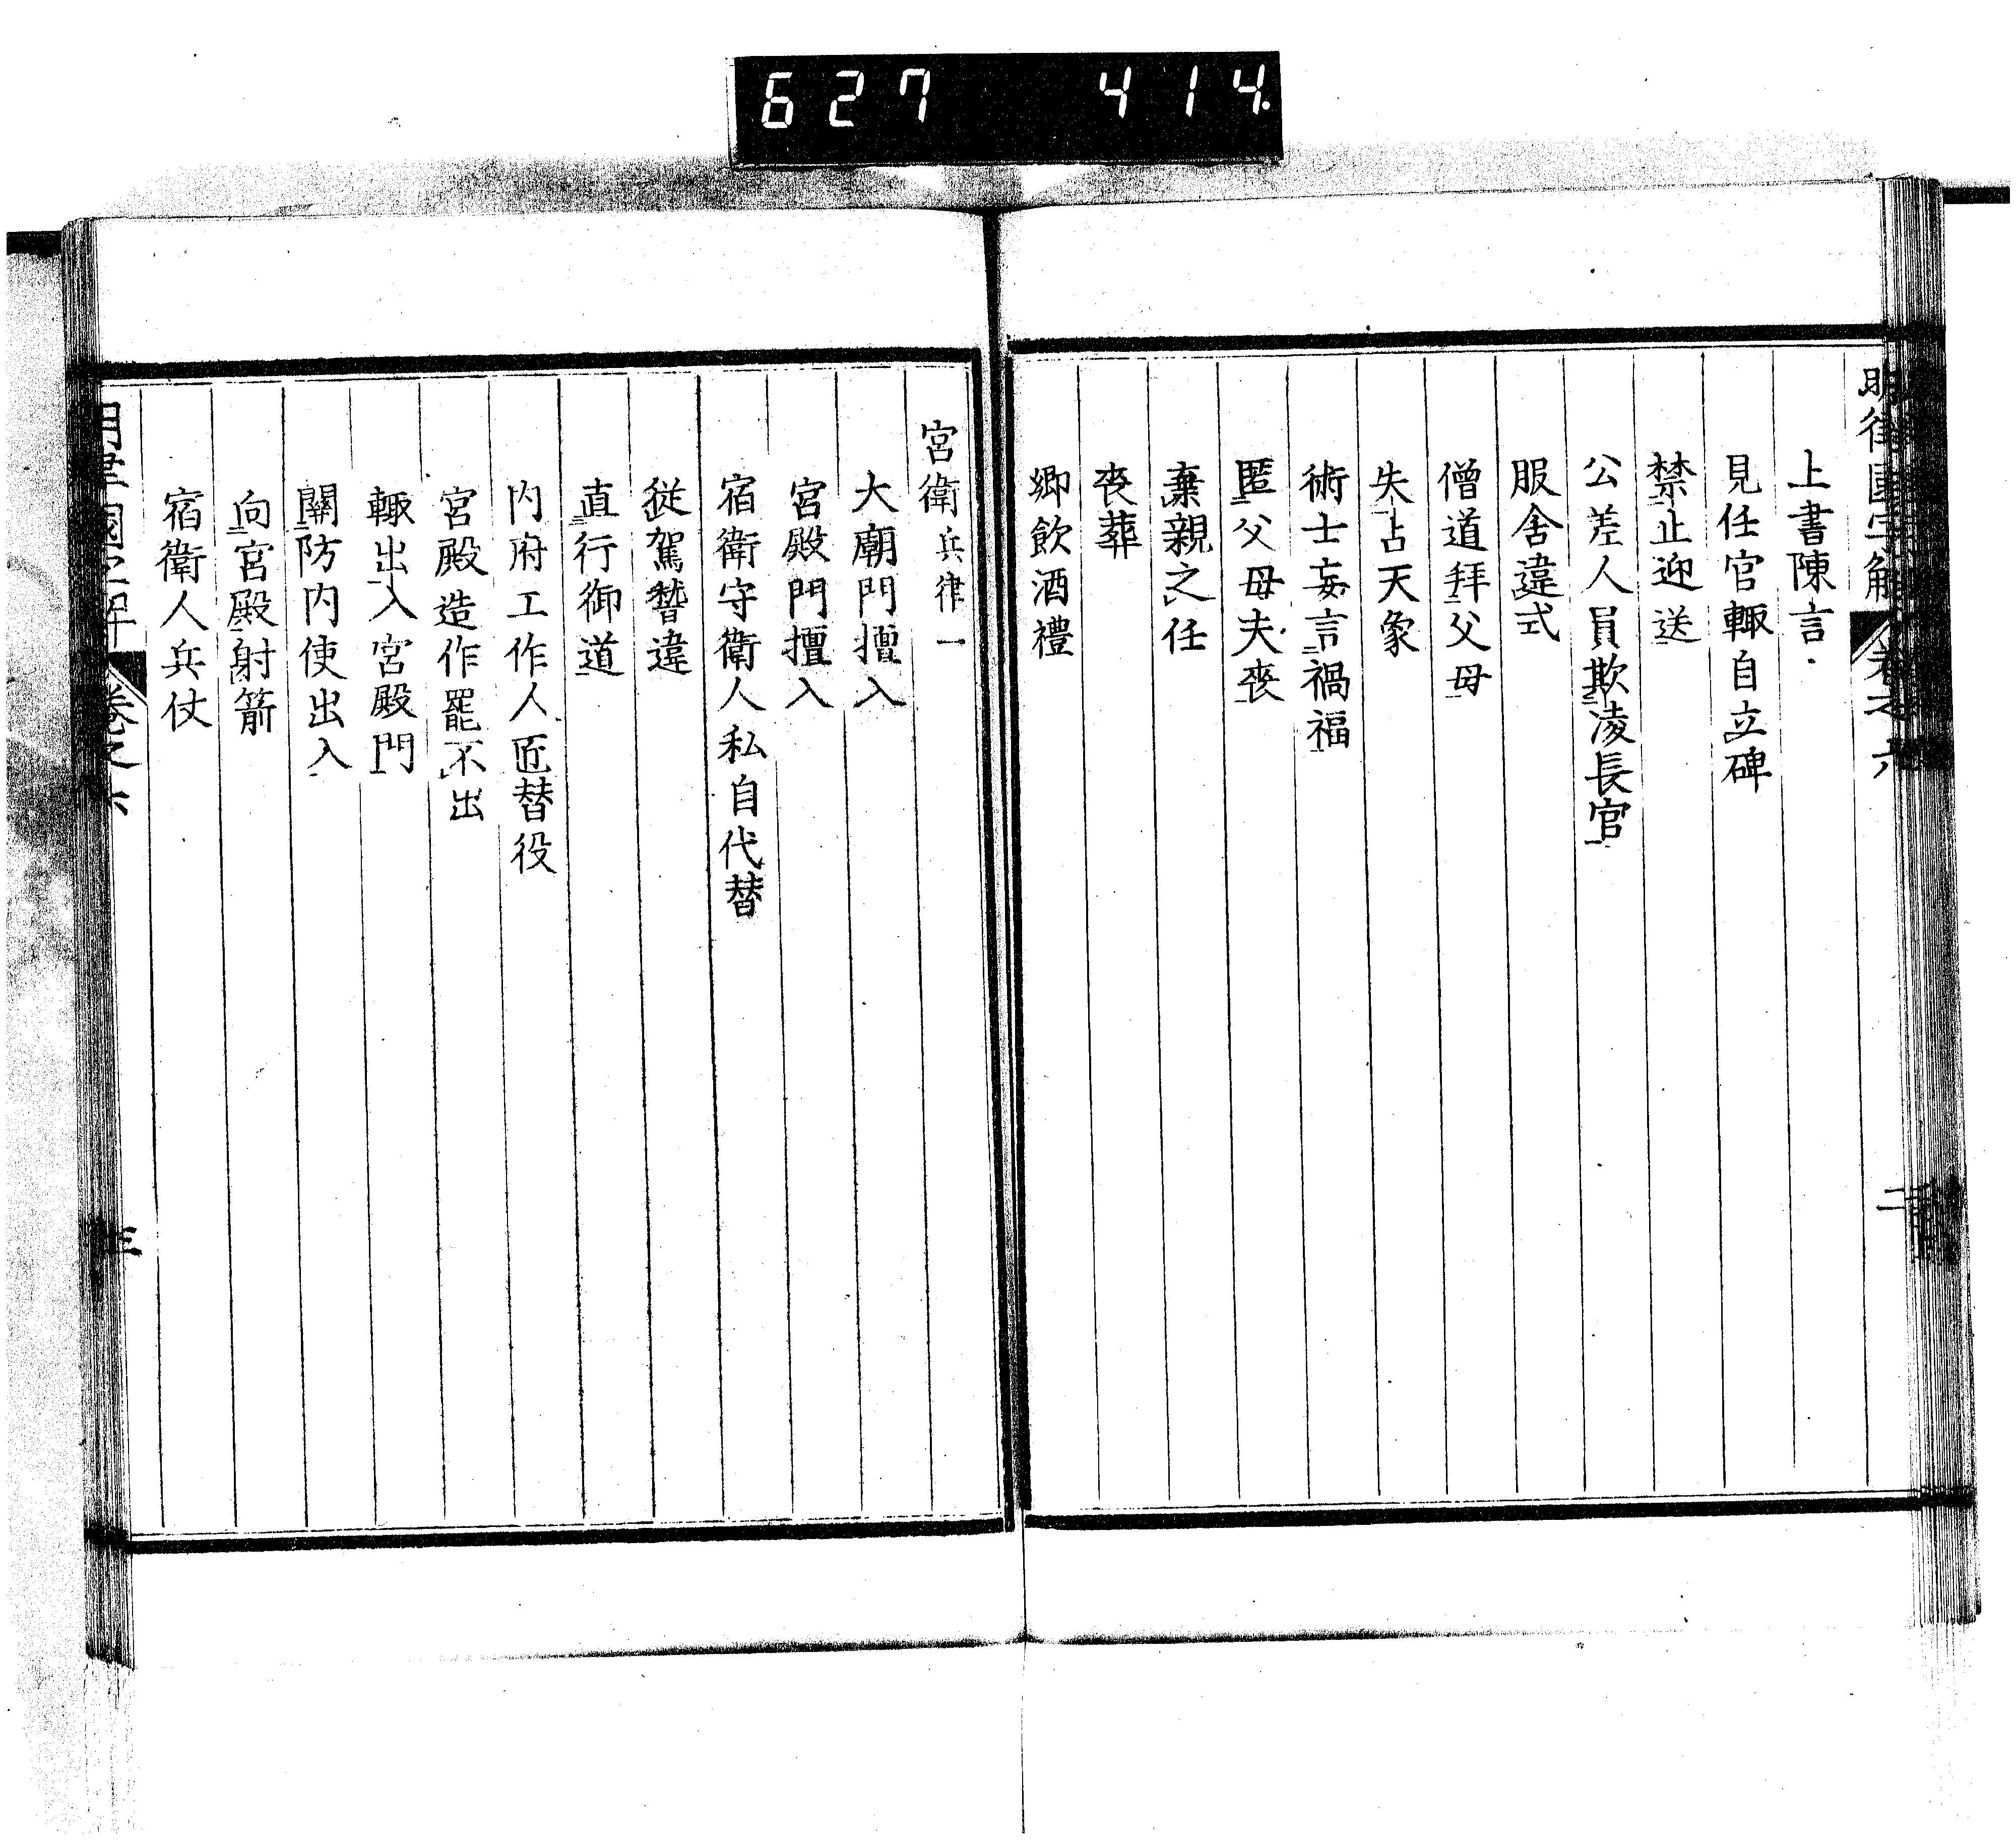 627 414
明律國字解 卷之六 二
上書陳言
見任官輙自立碑
禁止迎送
公差人員欺凌長官
服舍違式
僧道拜父母
失占天象
術士妄言禍福
匿父母夫喪
棄親之任
喪葬
鄉飲酒禮
宮衛兵律一
大廟門擅入
宮殿門擅入
宿衛守衛人私自代替
從駕稽違
直行御道
内府工作人匠替役
宮殿造作罷不出
輙出入宮殿門
關防内使出入
向宮殿射箭
宿衛人兵仗
明律國字解 卷之六 三